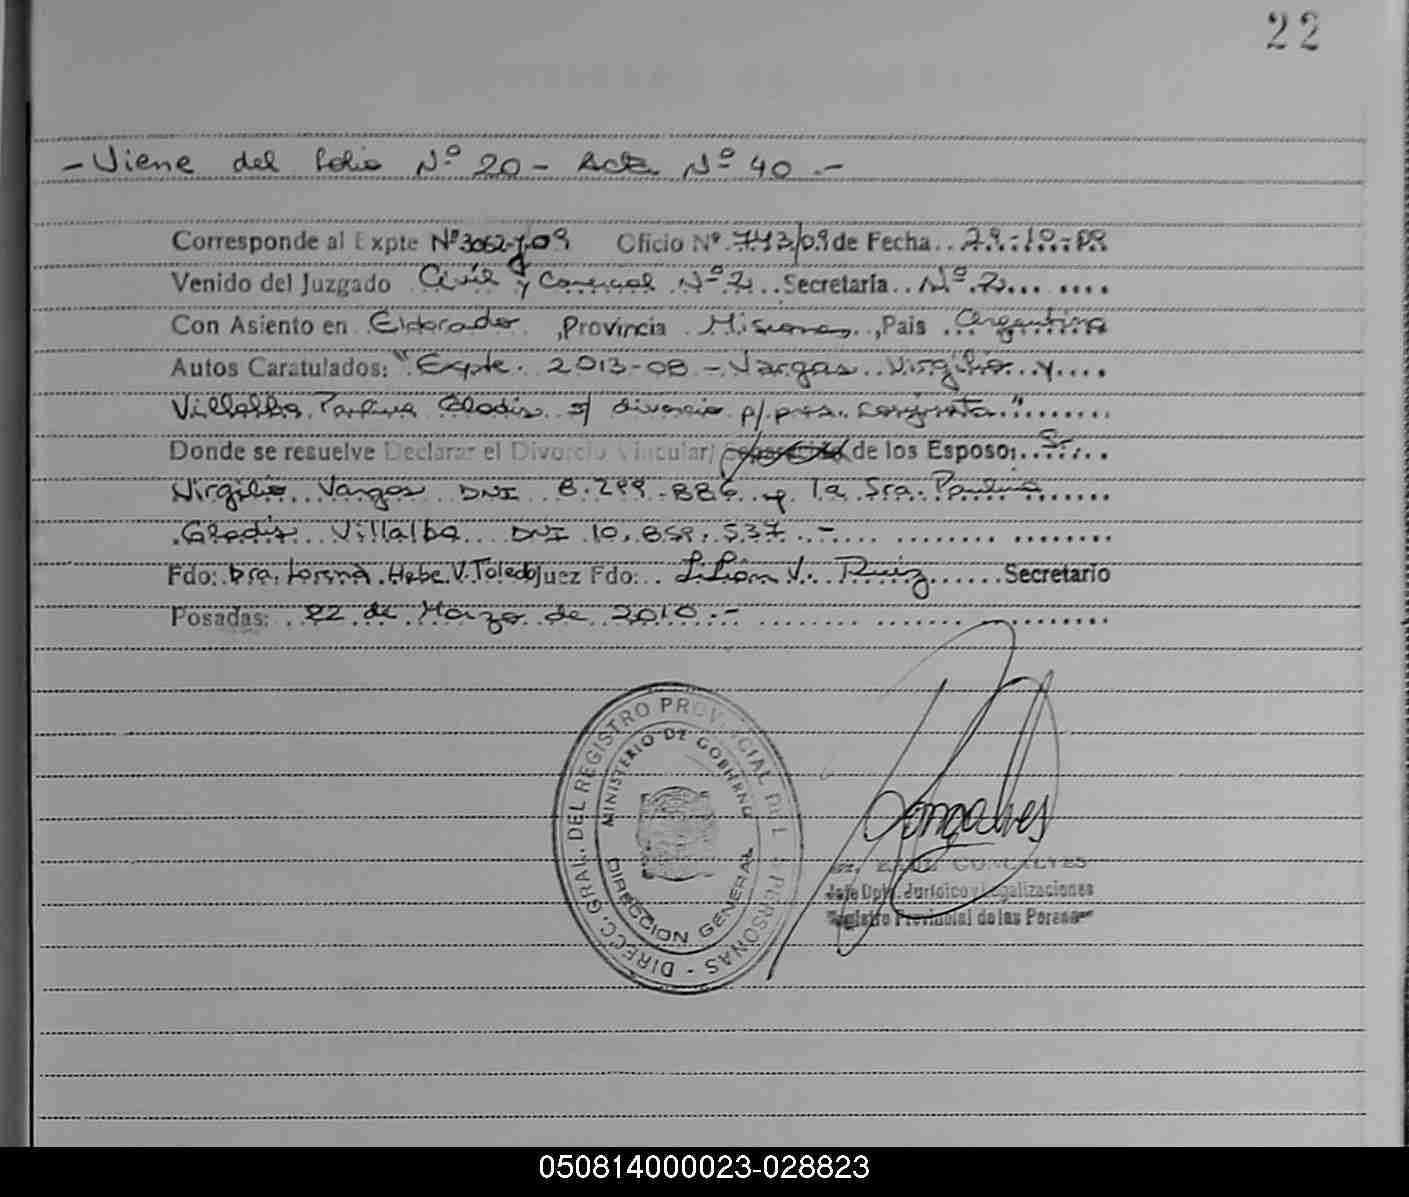 22
- Viene del folio Nº 20 - Acta Nº 40 . -
Corresponde al Expte Nº 3062-J-09 Oficio Nº 743/09 de Fecha
Venido del Juzgado Civil y Comercial Nº 2 Secretaría Nº 2
Con Asiento en Eldorado , Provincia Misiones , País Argentina
Autos Caratulados: "Expte. 2013-08 - Vargas Virgilio y
Villalba Paulina Gladis s/ divorcio p/ pres. conjunta."
Donde se resuelve Declarar el Divorcio Vincular/ de los Esposo: Sr.
Virgilio Vargas DNI 8.299.886 y la Sra. Paulina
Gladis Villalba DNI 10.859.537 . -
Fdo: Dra. Lorena Hebe V. Toledo Juez Fdo: Lilian V. Ruiz Secretario
Posadas: 22 de Marzo de 2010 . -
DIRECC. GRAL. DEL REGISTRO PROVINCIAL DE LAS PERSONAS -
MINISTERIO DE GOBIERNO
DIRECCION GENERAL
Gonçalves
GONCALVES
Jefe Dpto. Jurídico y Legalizaciones
Registro Provincial de las Personas
050814000023-028823